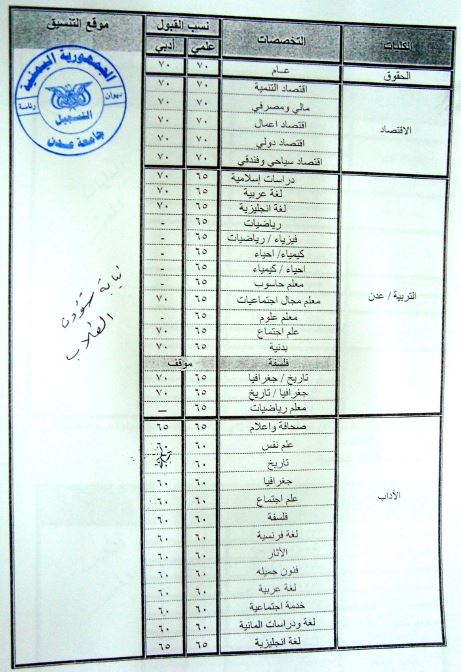 الكليات التخصصات نسب القبول موقع التنسيق
علمي أدبي
الحقوق عام ٧٠ ٧٠
الاقتصاد
اقتصاد التنمية ٧٠ ٧٠
مالي ومصرفي ٧٠ ٧٠
اقتصاد اعمال ٧٠ ٧٠
اقتصاد دولي ٧٠ ٧٠
اقتصاد سياحي وفندقي ٧٠ ٧٠
التربية / عدن
دراسات إسلامية ٦٥ ٧٠
لغة عربية ٦٥ ٧٠
لغة انجليزية ٦٥ ٧٠
رياضيات ٦٥ -
فيزياء / رياضيات ٦٥ -
كيمياء/ احياء ٦٥ -
احياء / كيمياء ٦٥ -
معلم حاسوب ٦٥ -
معلم مجال اجتماعيات ٦٥ ٧٠
معلم علوم ٦٥ -
علم اجتماع ٦٥ ٧٠
بدنية ٦٥ ٧٠
فلسفة موقف
تاريخ / جغرافيا ٦٥ ٧٠
جغرافيا / تاريخ ٦٥ ٧٠
معلم رياضيات ٦٥ —
الآداب
صحافة واعلام ٦٥ ٦٥
علم نفس ٦٠ ٦٠
تاريخ ٦٠
جغرافيا ٦٠ ٦٠
علم اجتماع ٦٠ ٦٠
فلسفة ٦٠ ٦٠
لغة فرنسية ٦٠ ٦٠
الآثار ٦٠ ٦٠
فنون جميله ٦٠ ٦٠
لغة عربية ٦٠ ٦٠
خدمة اجتماعية ٦٠ ٦٠
لغة ودراسات المانية ٦٠ ٦٠
لغة انجليزية ٦٥ ٦٥
الجمهورية اليمنية
ديوان رئاسة
التسجيل
جامعة عدن
نيابة شؤون
الطلاب